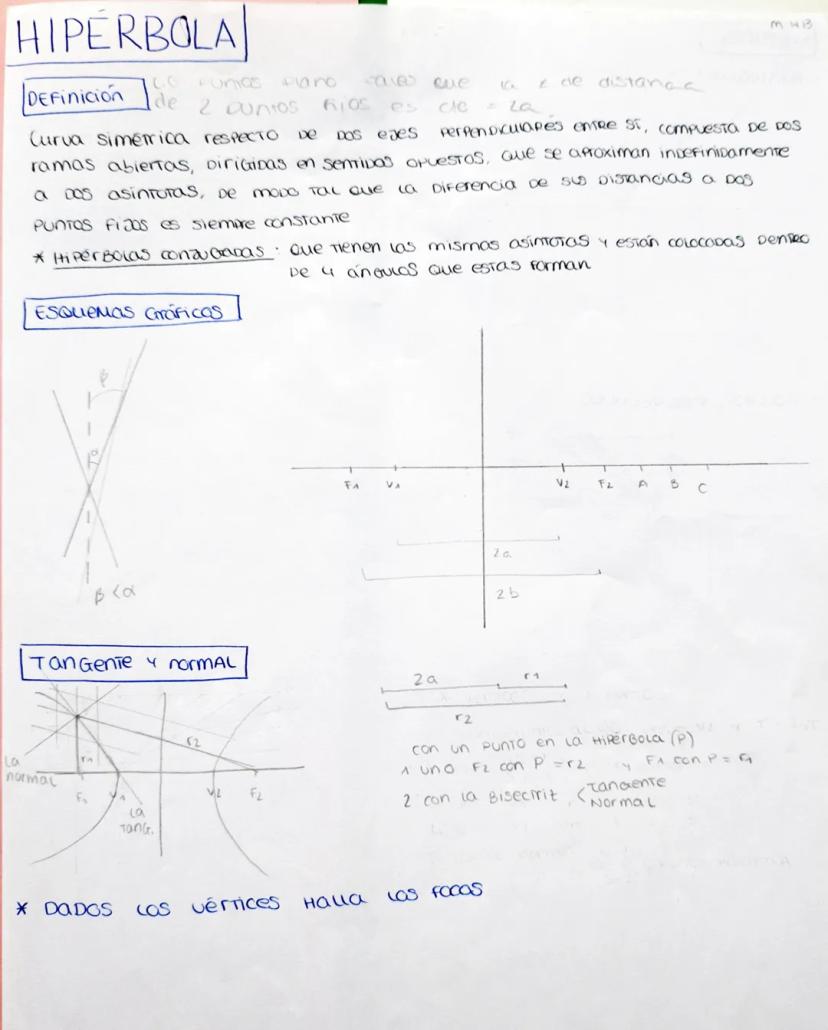 HIPÉRBOLA
DEFINICIÓN
puntos plano tales que la de distancia
de 2 puntos fijos es cte = 2a
CURVA SIMÉTRICA RESPECTO DE DOS EJES PERPENDICULARES ENTRE SÍ, COMPUESTA DE DOS
RAMAS ABIERTAS, DIRIGIDAS EN SENTIDOS OPUESTOS, QUE SE APROXIMAN INDEFINIDAMENTE
A DOS ASÍNTOTAS, DE MODO TAL QUE LA DIFERENCIA DE SUS DISTANCIAS A DOS
PUNTOS FIJOS ES SIEMPRE CONSTANTE
* HIPÉRBOLAS CONJUGADAS: QUE TIENEN LAS MISMAS ASÍNTOTAS Y ESTÁN COLOCADAS DENTRO
DE 4 ÁNGULOS QUE ESTAS FORMAN
ESQUEMAS GRÁFICOS
β
α
β<α
F1 V1 V2 F2 A B C
2a
2b
TANGENTE Y NORMAL
2a r1
r2
r2
r1
LA
NORMAL
F1 V1 V2 F2
LA
TANG.
CON UN PUNTO EN LA HIPÉRBOLA (P)
1 UNO F2 CON P = r2 Y F1 CON P = r1
2 CON LA BISECTRIZ < TANGENTE
NORMAL
* DADOS LOS VÉRTICES HALLA LOS FOCOS